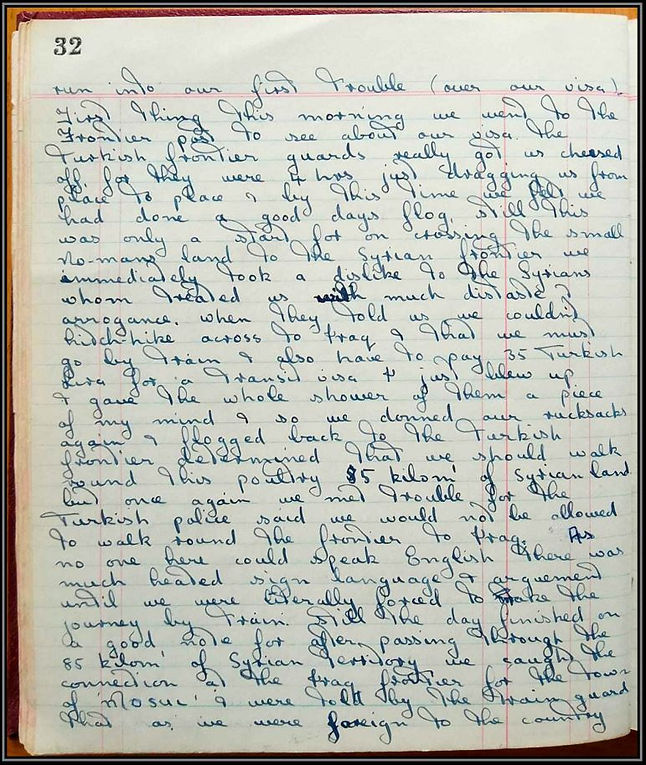 32
run into our first trouble (over our visa).
First thing this morning we went to the
Frontier post to see about our visa. the
Turkish frontier guards really got us cheesed
off, for they were 4 hrs just dragging us from
place to place & by this time we felt we
had done a good days flog, still this
was only a start for on crossing the small
no-mans land to the Syrian frontier we
immediately took a dislike to the Syrians
whom treated us with much distaste &
arrogance. when they told us we couldn't
hitch-hike across to Iraq & that we must
go by train & also have to pay 35 Turkish
Lira for a transit visa I just blew up
& gave the whole shower of them a piece
of my mind & so we donned our rucksacks
again & flogged back to the Turkish
frontier determined that we should walk
round this poultry 85 kilom' of Syrian land
but once again we met trouble for the
Turkish police said we would not be allowed
to walk round the frontier to Iraq. As
no one here could speak English there was
much heated sign language & arguement
until we were literally forced to take the
journey by train. Still the day finished on
a good note for after passing through the
85 kilom' of Syrian territory we caught the
connection at the Iraq frontier for the town
of 'Mosul' & were told by the train guard
that as we were foreign to the country